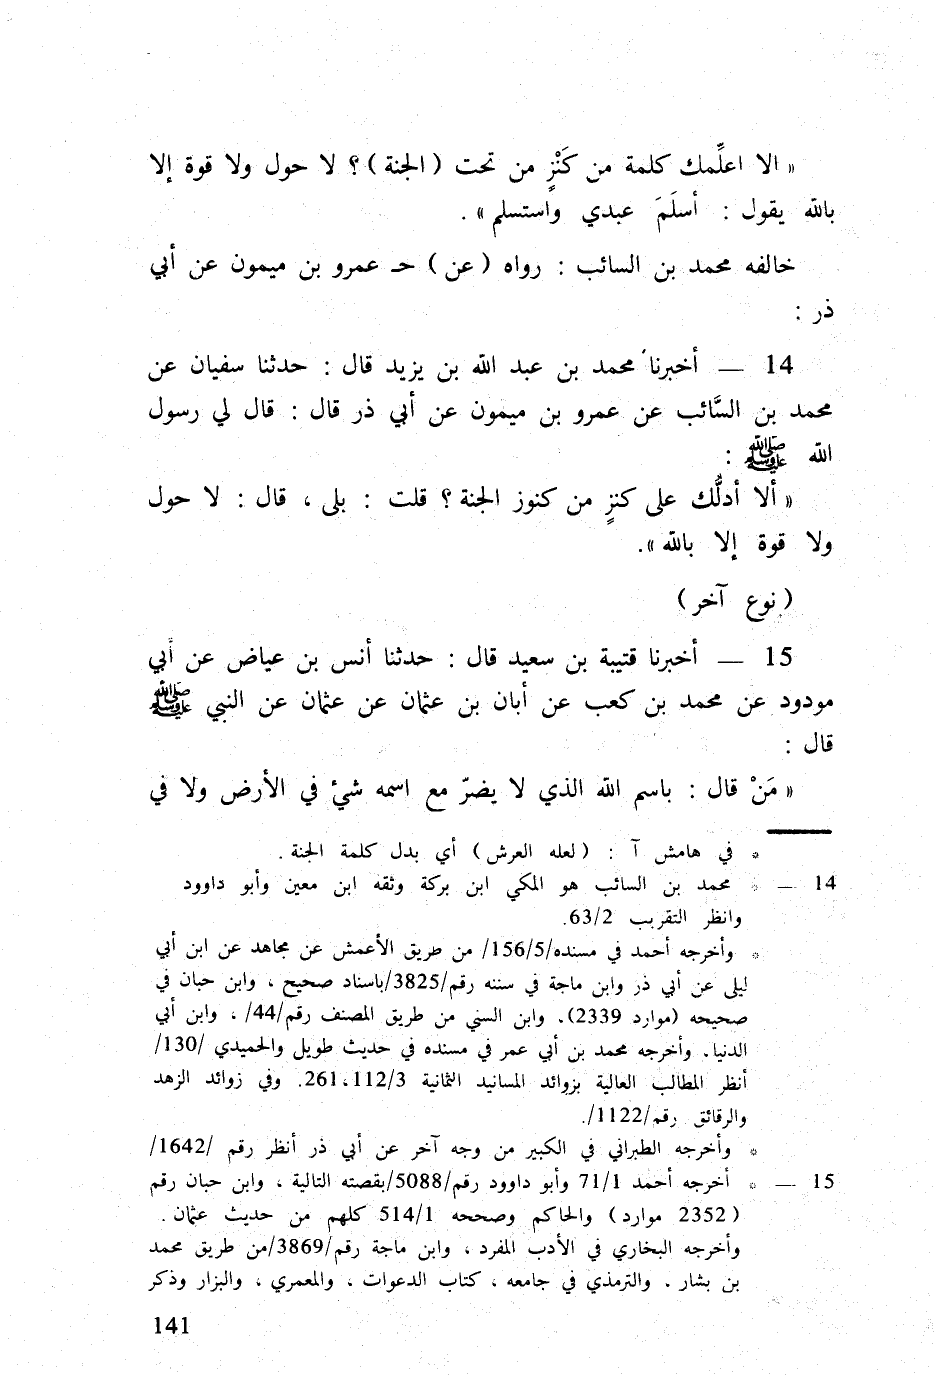 « الا اعلِّمك كلمة من كَنْزٍ من تحت ( الجنة ) ؟ لا حول ولا قوة إلا
بالله يقول : أسلَمَ عبدي واستسلم » .
خالفه محمد بن السائب : رواه ( عن ) حـ عمرو بن ميمون عن أبي
ذر :
14 — أخبرنا محمد بن عبد الله بن يزيد قال : حدثنا سفيان عن
محمد بن السَّائب عن عمرو بن ميمون عن أبي ذر قال : قال لي رسول
الله ﷺ :
« ألا أدلُّك على كنزٍ من كنوز الجنة ؟ قلت : بلى ، قال : لا حول
ولا قوة إلا بالله ».
( نوع آخر )
15 — أخبرنا قتيبة بن سعيد قال : حدثنا أنس بن عياض عن أبي
مودود عن محمد بن كعب عن أبان بن عثمان عن عثمان عن النبي ﷺ
قال :
« مَنْ قال : باسم الله الذي لا يضرّ مع اسمه شيْ في الأرض ولا في
* في هامش آ : ( لعله العرش ) أي بدل كلمة الجنة .
14 — * محمد بن السائب هو المكي ابن بركة وثقه ابن معين وأبو داوود
وانظر التقريب 63/2.
* وأخرجه أحمد في مسنده/156/5/ من طريق الأعمش عن مجاهد عن ابن أبي
ليلى عن أبي ذر وابن ماجة في سننه رقم/3825/باسناد صحيح ، وابن حبان في
صحيحه (موارد 2339). وابن السني من طريق المصنف رقم/44/ ، وابن أبي
الدنيا. وأخرجه محمد بن أبي عمر في مسنده في حديث طويل والحميدي /130/
أنظر المطالب العالية بزوائد المسانيد الثمانية 112/3،261. وفي زوائد الزهد
والرقائق رقم/1122/.
* وأخرجه الطبراني في الكبير من وجه آخر عن أبي ذر أنظر رقم /1642/
15 — * أخرجه أحمد 71/1 وأبو داوود رقم/5088/بقصته التالية ، وابن حبان رقم
( 2352 موارد ) والحاكم وصححه 514/1 كلهم من حديث عثمان .
وأخرجه البخاري في الأدب المفرد ، وابن ماجة رقم/3869/من طريق محمد
بن بشار . والترمذي في جامعه ، كتاب الدعوات ، والمعمري ، والبزار وذكر
141